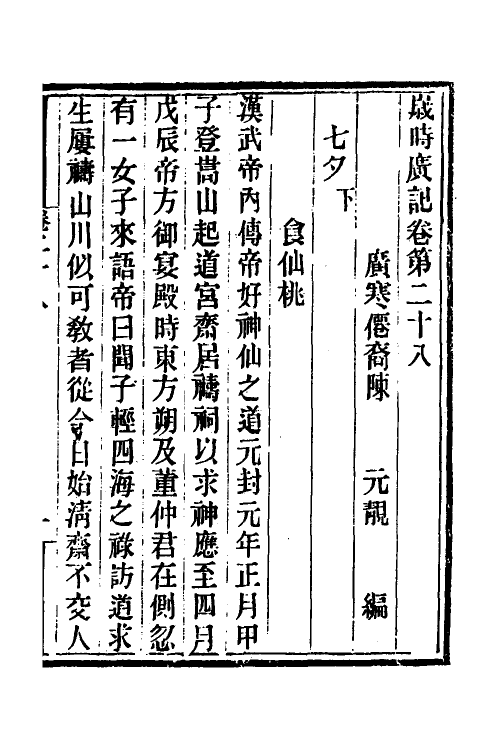 歲時廣記卷第二十八
廣寒僊裔陳 元靚 編
七夕下
食仙桃
漢武帝內傳帝好神仙之道元封元年正月甲
子登嵩山起道宮齋居禱祠以求神應至四月
戊辰帝方御宴殿時東方朔及董仲君在側忽
有一女子來語帝曰聞子輕四海之祿訪道求
生屢禱山川似可敎者從今日始淸齋不交人